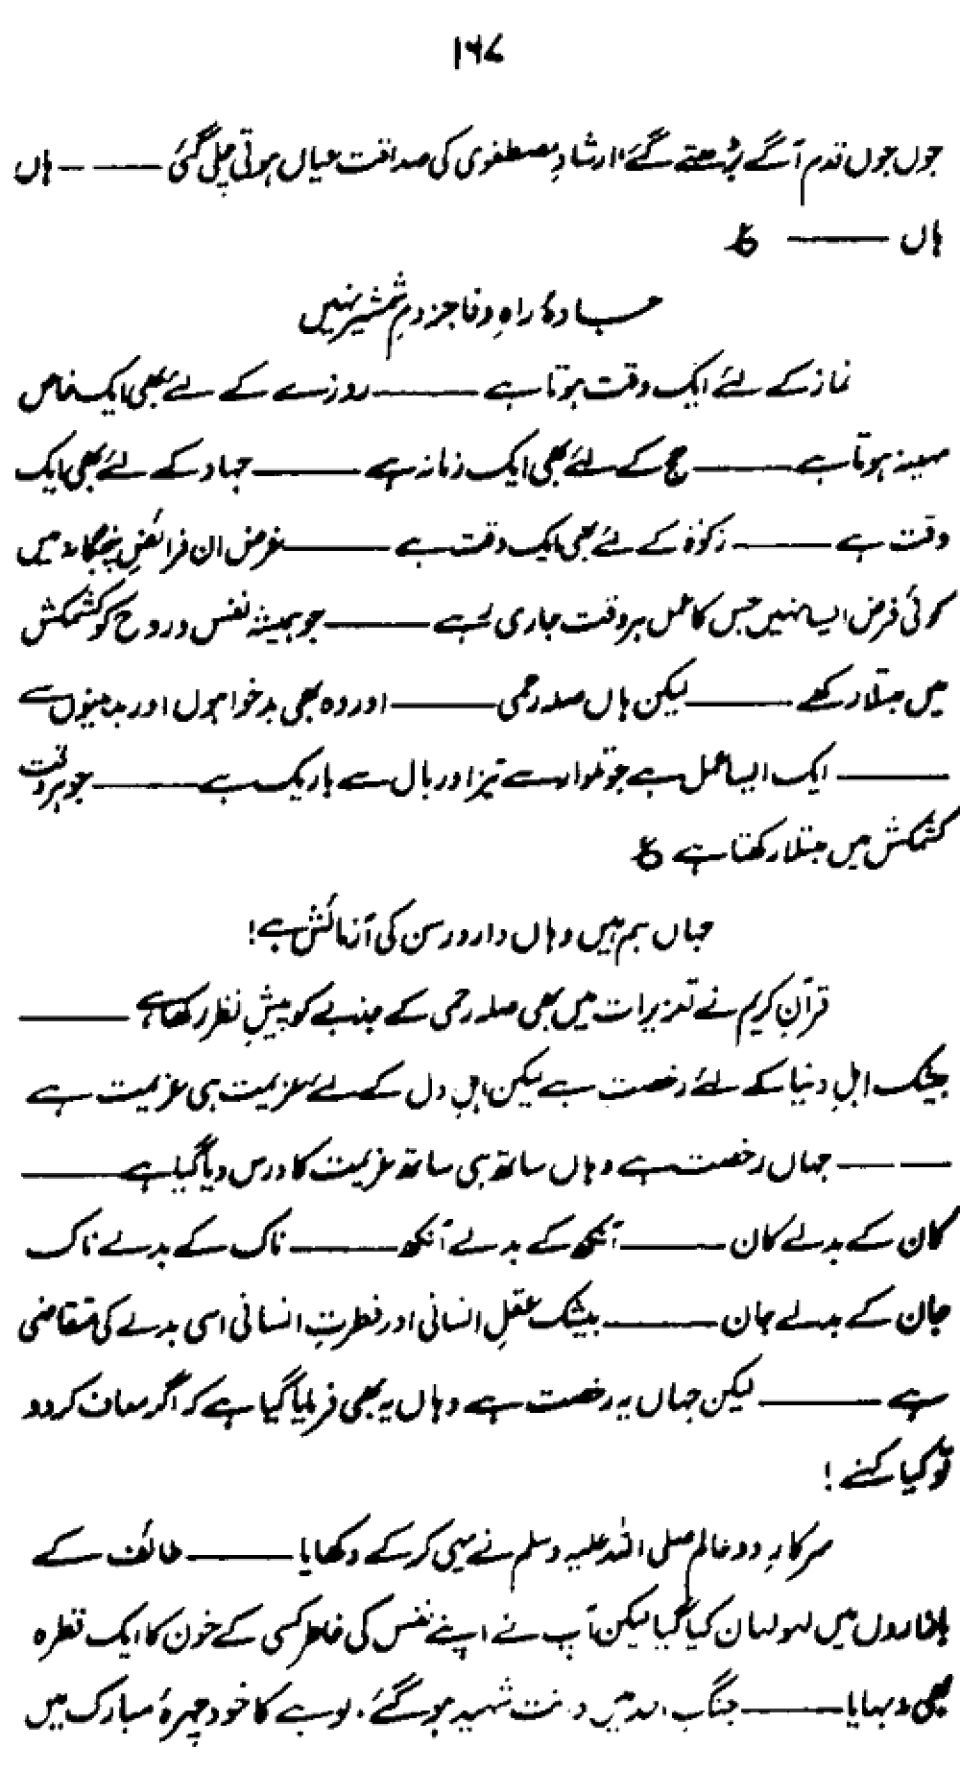 ۱۶۷
جوں جوں قدم آگے بڑھتے گئے، ارشادِ مصطفوی کی صداقت عیاں ہوتی چلی گئی ——— ہاں
ہاں ——— ع
جادۂ راہِ وفا جز دمِ شمشیر نہیں
نماز کے لئے ایک وقت ہوتا ہے ——— روزے کے لئے بھی ایک خاص
مہینہ ہوتا ہے ——— حج کے لئے بھی ایک زمانہ ہے ——— جہاد کے لئے بھی ایک
وقت ہے ——— زکوٰۃ کے لئے بھی ایک وقت ہے ——— غرض ان فرائضِ پنجگانہ میں
کوئی فرض ایسا نہیں جس کا عمل ہر وقت جاری رہے ——— جو ہمیشہ نفس و روح کو کشمکش
میں مبتلا رکھے ——— لیکن ہاں صلہ رحمی ——— اور وہ بھی بدخواہوں اور بدبینوں سے
——— ایک ایسا عمل ہے جو تلوار سے تیز اور بال سے باریک ہے ——— جو ہر وقت
کشمکش میں مبتلا رکھتا ہے ع
جہاں ہم ہیں وہاں دار و رسن کی آزمائش ہے!
قرآن کریم نے تعزیرات میں بھی صلہ رحمی کے جذبے کو پیشِ نظر رکھا ہے ———
بیشک اہلِ دنیا کے لئے رخصت ہے لیکن اہلِ دل کے لئے عزیمت ہی عزیمت ہے
——— جہاں رخصت ہے وہاں ساتھ ہی ساتھ عزیمت کا درس دیا گیا ہے ———
کان کے بدلے کان ——— آنکھ کے بدلے آنکھ ——— ناک کے بدلے ناک
جان کے بدلے جان ——— بیشک عقلِ انسانی اور فطرتِ انسانی اسی بدلے کی متقاضی
ہے ——— لیکن جہاں یہ رخصت ہے وہاں یہ بھی فرمایا گیا ہے کہ اگر معاف کر دو
تو کیا کہنے!
سرکارِ دو عالم صلی اللہ علیہ وسلم نے یہی کر کے دکھایا ——— طائف کے
بازاروں میں لہولہان کیا گیا لیکن آپ نے اپنے نفس کی خاطر کسی کے خون کا ایک قطرہ
بھی نہ بہایا ——— جنگِ احد میں دانت شہید ہو گئے، لوہے کا خود چہرۂ مبارک میں